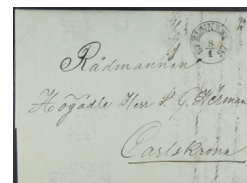 Rådmannen
Högädle Herr P. G. Herman
Carlskrona